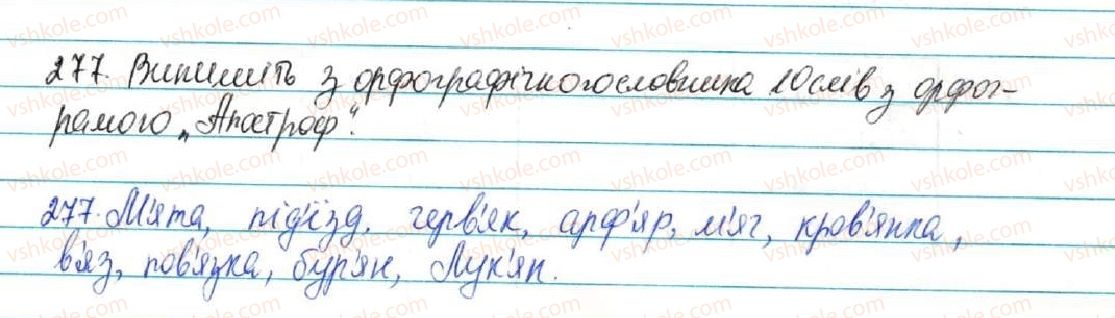 277. Випишіть з орфографічного словника 10 слів з орфог-
рамою „Апостроф“.
277. М'ята, під'їзд, черв'як, арф'яр, м'яч, кров'янка,
в'яз, пов'язка, бур'ян, Лук'ян.